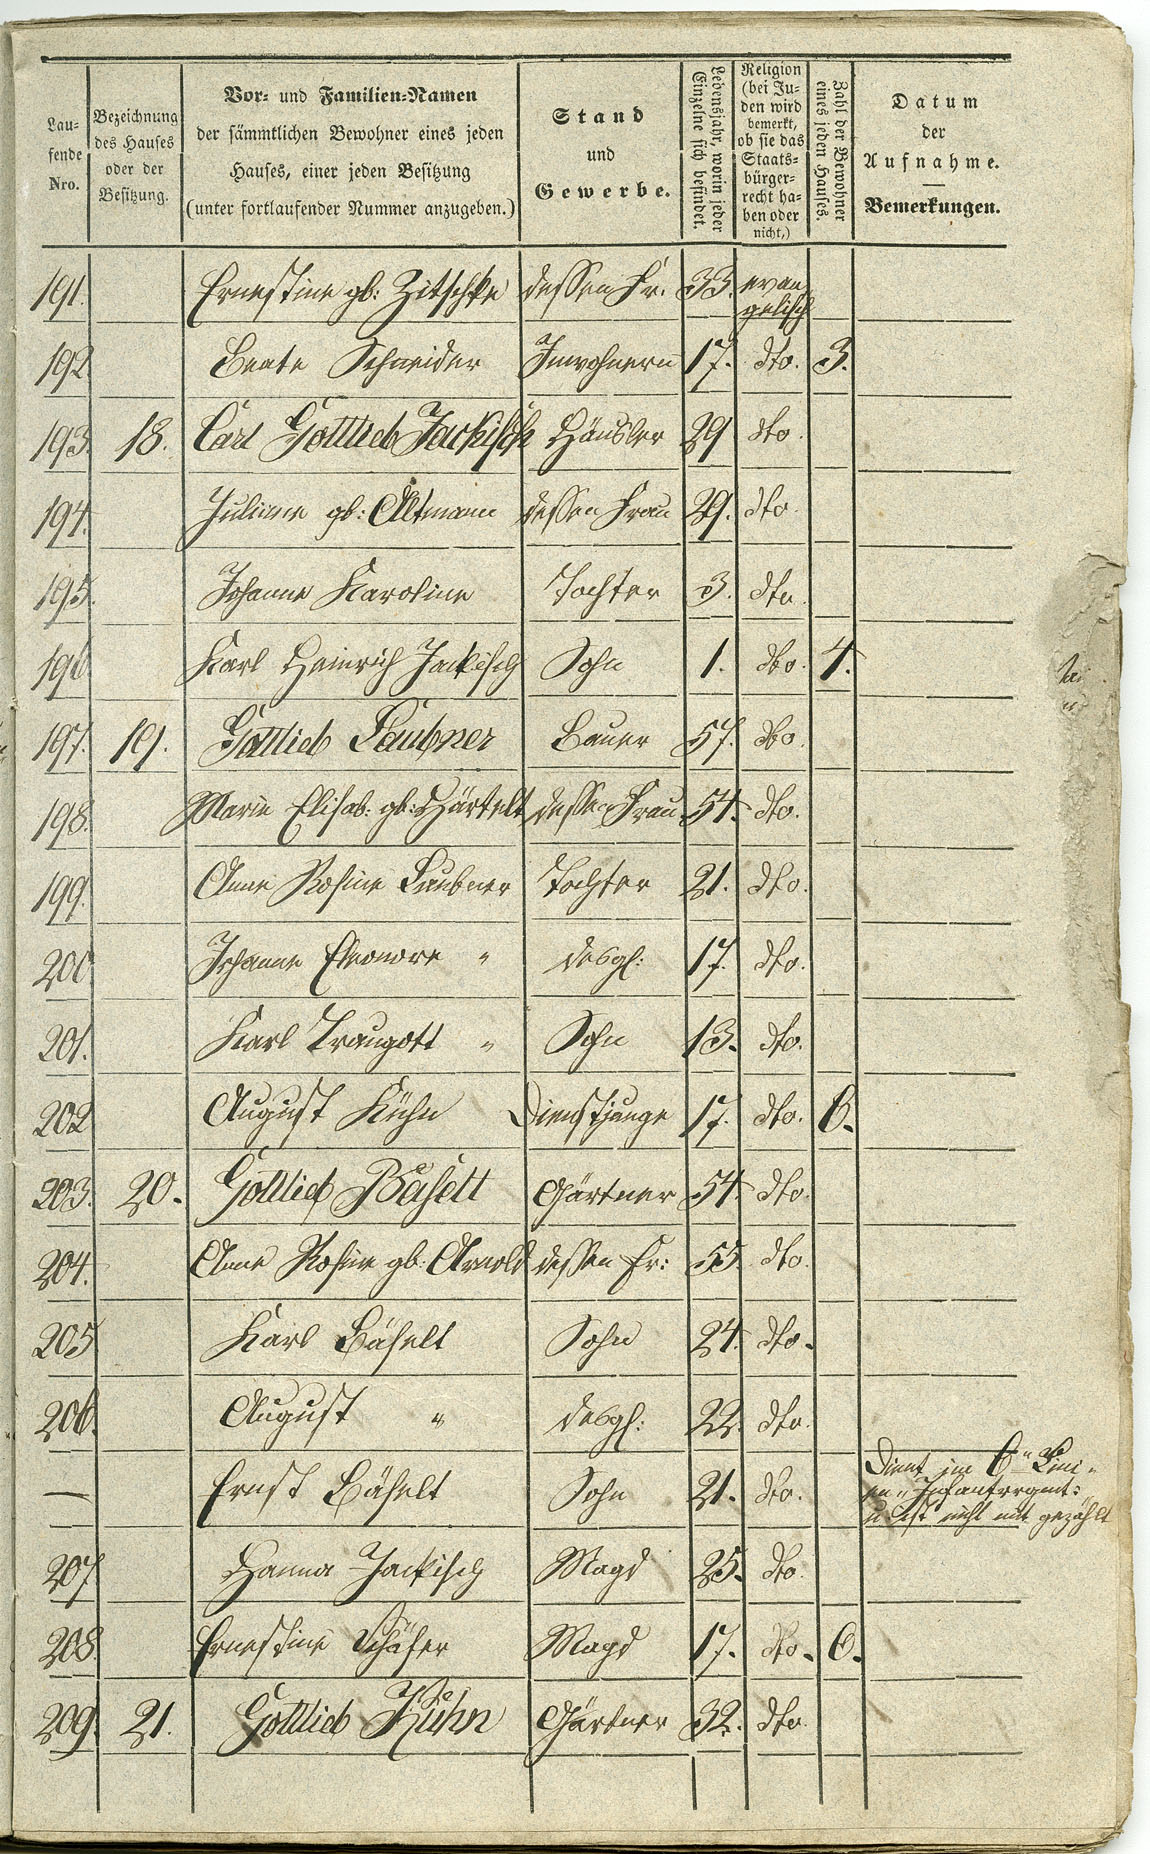 Lau-
fende
Nro.
Bezeichnung
des Hauses
oder der
Besitzung.
Vor- und Familien-Namen
der sämmtlichen Bewohner eines jeden
Hauses, einer jeden Besitzung
(unter fortlaufender Nummer anzugeben.)
Stand
und
Gewerbe.
Lebensjahr, worin jeder
Einzelne sich befindet.
Religion
(bei Ju-
den wird
bemerkt,
ob sie das
Staats-
bürger-
recht ha-
ben oder
nicht,)
Zahl der Bewohner
eines jeden Hauses.
Datum
der
Aufnahme.
Bemerkungen.
191. Ernestine gb: Zitschke dessen Fr. 33. evan
gelisch
192. Beate Schneider Inwohnerin 17. dto. 3.
193. 18. Carl Gottlieb Jackisch Häusler 29 dto.
194. Juliane gb: Altmann dessen Frau 29. dto.
195. Johanne Karoline Tochter 3. dto.
196. Karl Heinrich Jackisch Sohn 1. dto. 4.
197. 19. Gottlieb Laubner Bauer 57. dto.
198. Marie Elisab: gb: Härtelt dessen Frau 54. dto.
199. Anne Rosine Laubner Tochter 21. dto.
200. Johanne Eleonore " desgl: 17. dto.
201. Karl Traugott " Sohn 13. dto.
202 August Kühn Dienstjunge 17. dto. 6.
203. 20. Gottlieb Bäselt Gärtner 54. dto.
204. Anne Rosine gb: Arnold dessen Fr: 55. dto.
205 Karl Bäselt Sohn 24. dto.
206. August " desgl: 22. dto.
— Ernst Bäselt Sohn 21. dto. Dient im 6n Lini-
en-Infantrrgmt:
u ist nicht mit gezählt
207 Hanna Jackisch Magd 25. dto.
208. Ernestine Schäfer Magd 17. dto. 6.
209. 21. Gottlieb Kühn Gärtner 32. dto.